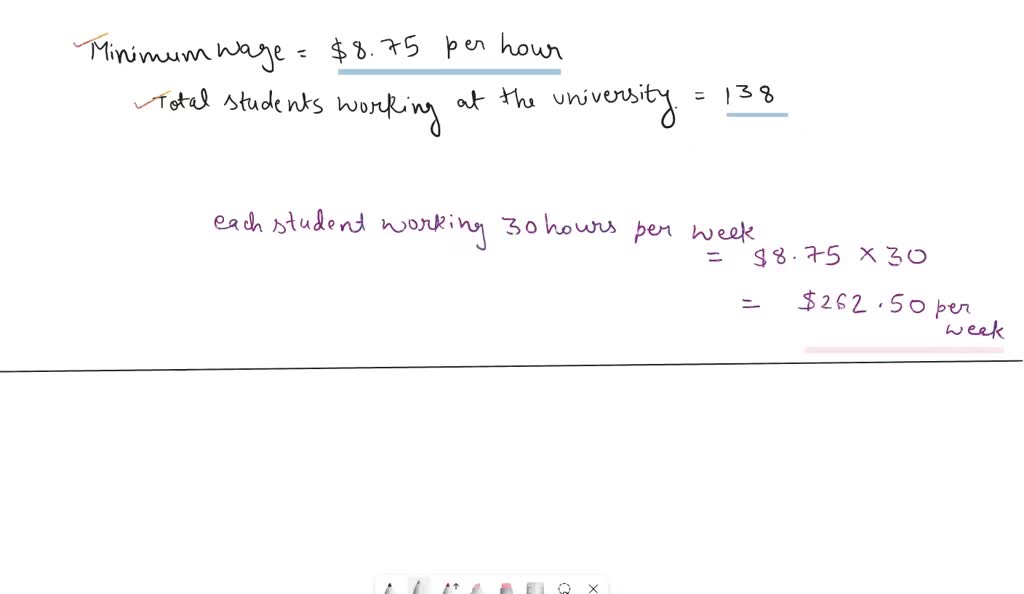 Minimum Wage = $8.75 per hour
Total students working at the university. = 138
each student working 30 hours per week
= $8.75 × 30
= $262.50 per
week